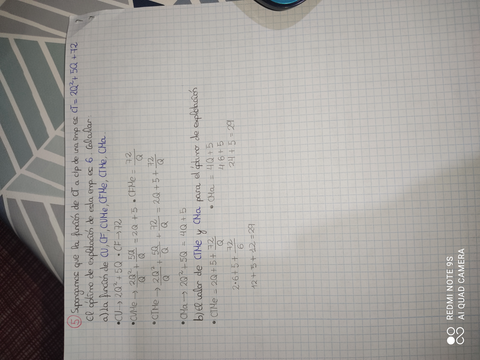 5 Supongamos que la función de CT a c/p de una emp es CT = 2Q² + 5Q + 72
El óptimo de explotación de esta emp es 6. Calcular
a) La función de CV, CF, CVMe, CFMe, CTMe, CMa
• CV → 2Q² + 5Q • CF → 72
• CVMe → 2Q²/Q + 5Q/Q = 2Q + 5 • CFMe = 72/Q
• CTMe → 2Q²/Q + 5Q/Q + 72/Q = 2Q + 5 + 72/Q
• CMa → 2Q² + 5Q = 4Q + 5
b) El valor de CTMe y CMa para el óptimo de explotación
• CTMe = 2Q + 5 + 72/Q • CMa = 4Q + 5
2·6 + 5 + 72/6 4·6 + 5
12 + 5 + 12 = 29 24 + 5 = 29
REDMI NOTE 9S
AI QUAD CAMERA